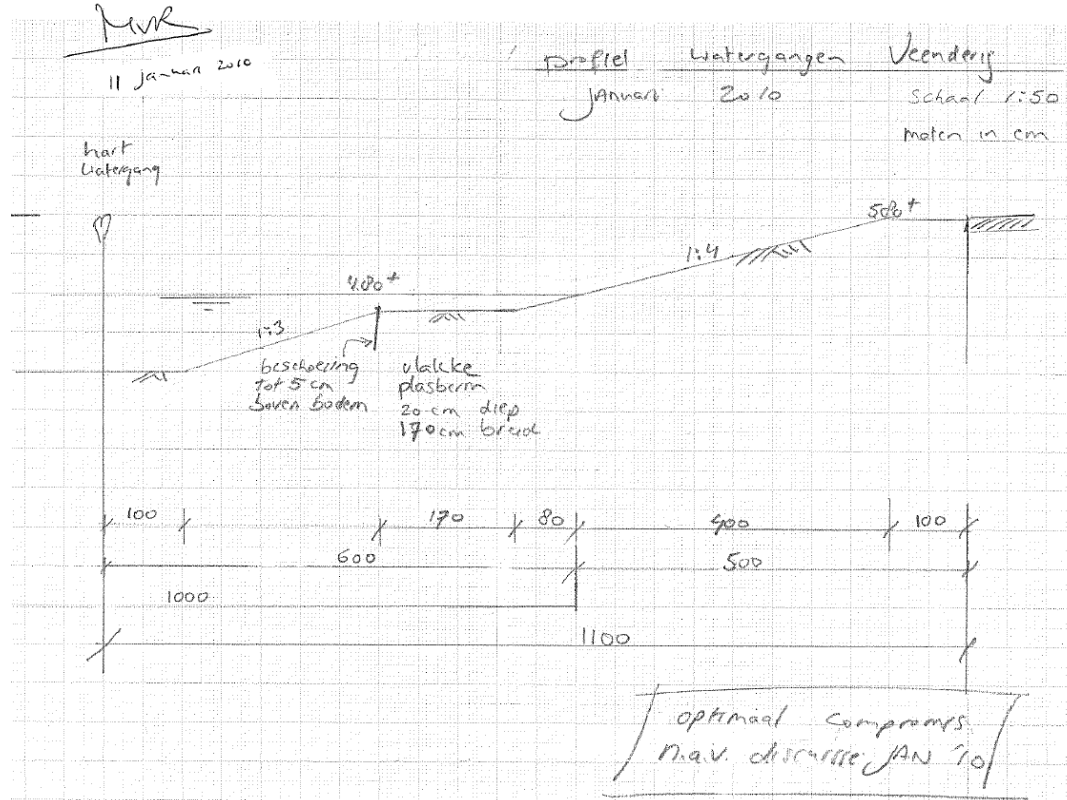 MvR
11 januari 2010
profiel watergangen Veenderij
JANuari 2010
Schaal 1:50
maten in cm
hart
watergang
5.80+
1:4
4.80+
1:3
beschoeiing
tot 5 cm
boven bodem
vlakke
plasberm
20 cm diep
170 cm breed
100
170
80
400
100
600
500
1000
1100
optimaal compromis
n.a.v. discussie JAN '10